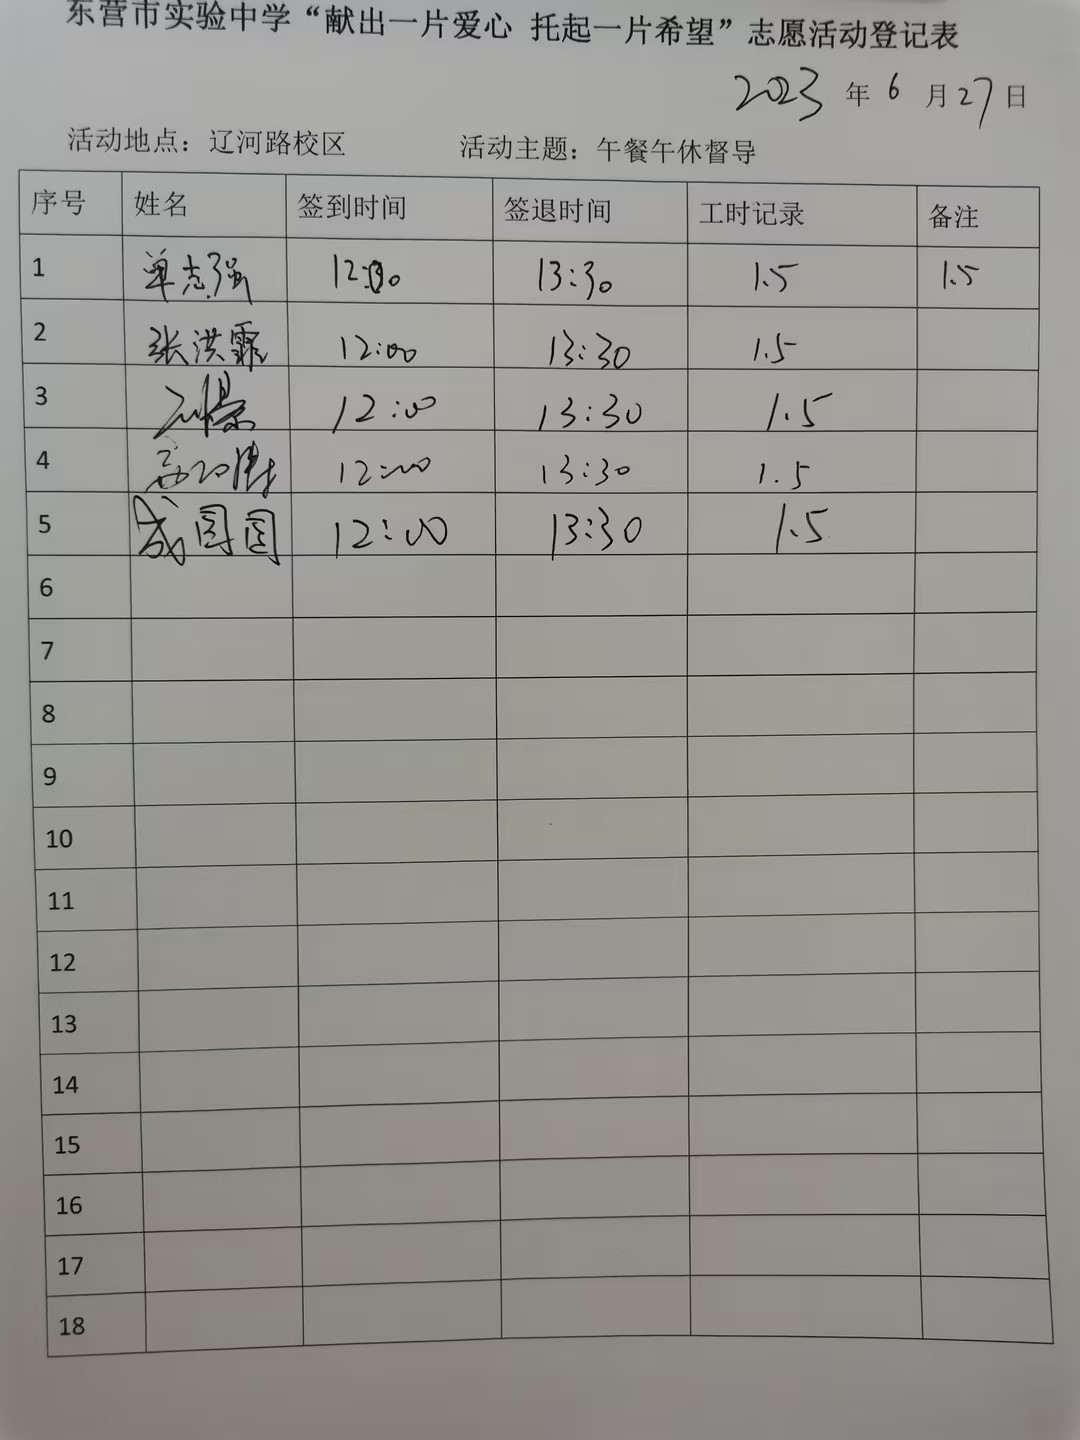 东营市实验中学“献出一片爱心 托起一片希望”志愿活动登记表
2023 年 6 月 27 日
活动地点：辽河路校区 活动主题：午餐午休督导
序号 姓名 签到时间 签退时间 工时记录 备注
1 单志强 12:00 13:30 1.5 1.5
2 张洪霏 12:00 13:30 1.5
3 12:00 13:30 1.5
4 12:00 13:30 1.5
5 成圆圆 12:00 13:30 1.5
6
7
8
9
10
11
12
13
14
15
16
17
18